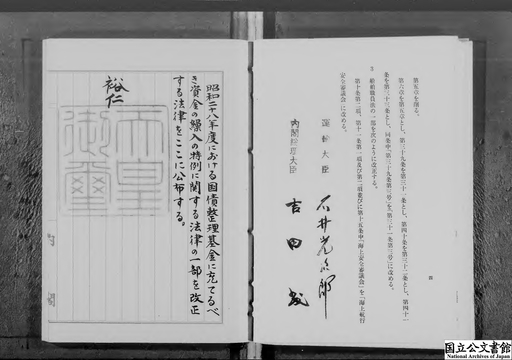 第五章を削る。
第六章を第五章とし、第三十九条を第三十一条とし、第四十条を第三十二条とし、第四十一
条を第三十三条とし、同条中「第三十九条第三号」を「第三十一条第三号」に改める。
船舶職員法の一部を次のように改正する。
第十条第二項、第十一条第一項及び第二項並びに第十五条中「海上安全審議会」を「海上航行
安全審議会」に改める。
四
運輸大臣 石井光次郎
内閣総理大臣 吉田茂
昭和二十八年度における国債整理基金に充てるべ
き資金の繰入の特例に関する法律の一部を改正
する法律をここに公布する。
裕仁
天皇
御璽
国立公文書館
National Archives of Japan